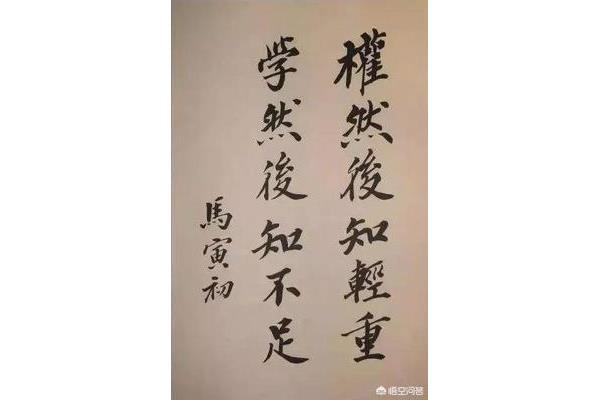 權然後知輕重
学然後知不足
馬寅初
悟空问答